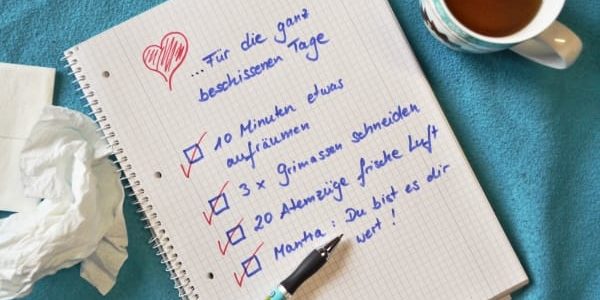 ...Für die ganz
beschissenen Tage
10 Minuten etwas
aufräumen
3 x Grimassen schneiden
20 Atemzüge frische Luft
Mantra: Du bist es dir
wert!